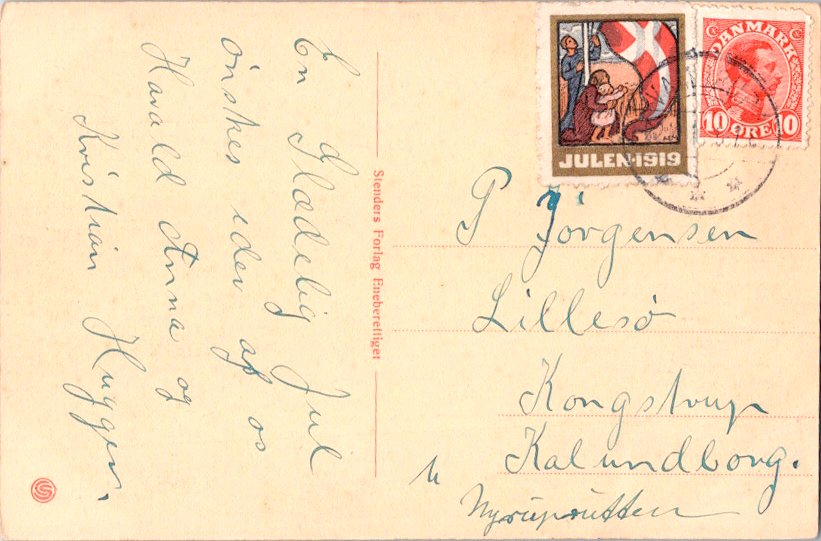 En Glædelig Jul
ønskes eder af os
Harald Anna og
Kristian Huggen.
Stenders Forlag Eneberettiget
JULEN·1919
DANMARK
10 ØRE 10
P Jörgensen
Lillesö
Kongstrup
Kalundborg.
Nyruprutten